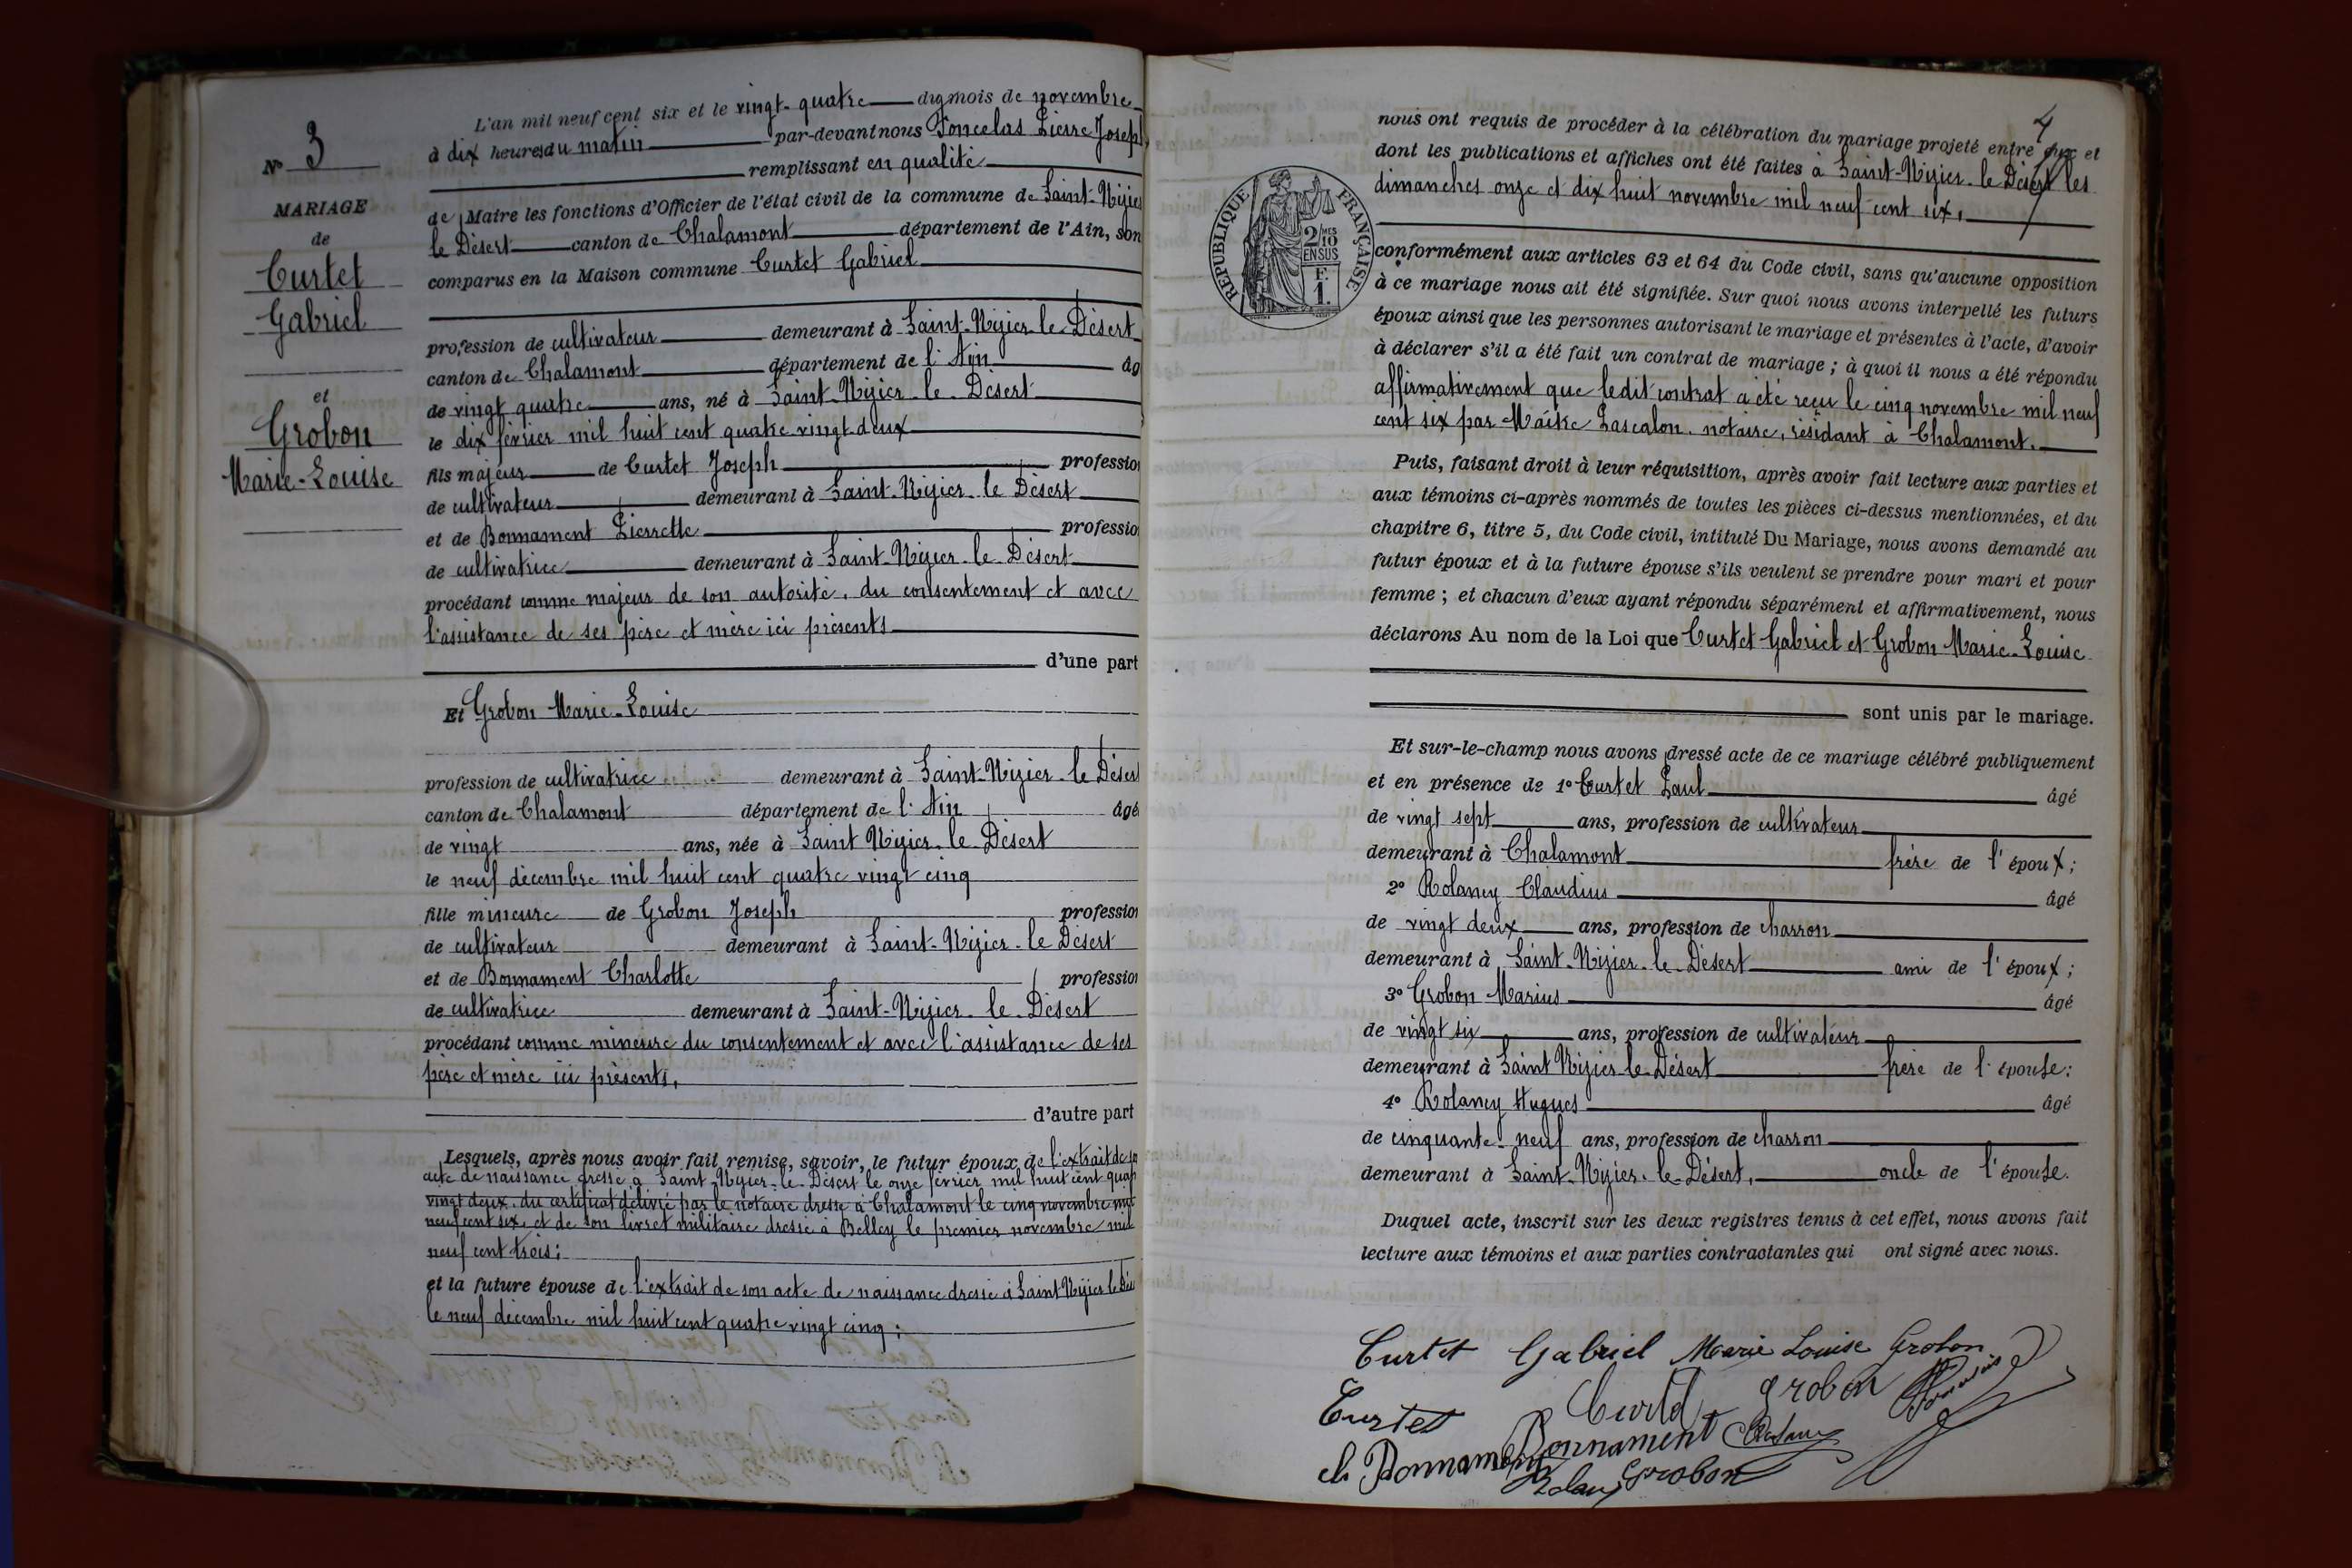 N° 3
MARIAGE
de
Curtet
Gabriel
et
Grobon
Marie-Louise
L'an mil neuf cent six et le vingt-quatre du mois de novembre
à dix heures du matin par-devant nous Poncelas Pierre Joseph
remplissant en qualité
de Maire les fonctions d'Officier de l'état civil de la commune de Saint-Nizier
le Désert canton de Chalamont département de l'Ain, son
comparus en la Maison commune Curtet Gabriel
profession de cultivateur demeurant à Saint-Nizier-le-Désert
canton de Chalamont département de l'Ain âg
de vingt quatre ans, né à Saint-Nizier-le-Désert
le dix février mil huit cent quatre vingt-deux
fils majeur de Curtet Joseph profession
de cultivateur demeurant à Saint-Nizier-le Désert
et de Bonnament Pierrette profession
de cultivatrice demeurant à Saint-Nizier-le-Désert
procédant comme majeur de son autorité, du consentement et avec
l'assistance de ses père et mère ici présents
d'une part
Et Grobon Marie-Louise
profession de cultivatrice demeurant à Saint-Nizier-le Désert
canton de Chalamont département de l'Ain âgé
de vingt ans, née à Saint Nizier-le-Désert
le neuf décembre mil huit cent quatre vingt cinq
fille mineure de Grobon Joseph profession
de cultivateur demeurant à Saint-Nizier-le Désert
et de Bonnament Charlotte profession
de cultivatrice demeurant à Saint-Nizier-le-Désert
procédant comme mineure du consentement et avec l'assistance de ses
père et mère ici présents,
d'autre part
Lesquels, après nous avoir fait remise, savoir, le futur époux de l'extrait de so
acte de naissance dressé à Saint-Nizier-le-Désert le onze février mil huit cent quatr
vingt deux, du certificat délivré par le notaire dressé à Chalamont le cinq novembre mil
neuf cent six, et de son livret militaire dressé à Belley le premier novembre mil
neuf cent trois;
et la future épouse de l'extrait de son acte de naissance dressé à Saint-Nizier le Dés
le neuf décembre mil huit cent quatre vingt cinq;
4
nous ont requis de procéder à la célébration du mariage projeté entre eux et
dont les publications et affiches ont été faites à Saint-Nizier-le Désert les
dimanches onze et dix huit novembre mil neuf cent six,
RÉPUBLIQUE FRANÇAISE
2/10 MES
EN SUS
F.
1.
conformément aux articles 63 et 64 du Code civil, sans qu'aucune opposition
à ce mariage nous ait été signifiée. Sur quoi nous avons interpellé les futurs
époux ainsi que les personnes autorisant le mariage et présentes à l'acte, d'avoir
à déclarer s'il a été fait un contrat de mariage; à quoi il nous a été répondu
affirmativement que ledit contrat a été reçu le cinq novembre mil neuf
cent six par Maître Lascalon, notaire, résidant à Chalamont.
Puis, faisant droit à leur réquisition, après avoir fait lecture aux parties et
aux témoins ci-après nommés de toutes les pièces ci-dessus mentionnées, et du
chapitre 6, titre 5, du Code civil, intitulé Du Mariage, nous avons demandé au
futur époux et à la future épouse s'ils veulent se prendre pour mari et pour
femme; et chacun d'eux ayant répondu séparément et affirmativement, nous
déclarons Au nom de la Loi que Curtet Gabriel et Grobon Marie-Louise
sont unis par le mariage.
Et sur-le-champ nous avons dressé acte de ce mariage célébré publiquement
et en présence de 1° Curtet Paul âgé
de vingt sept ans, profession de cultivateur
demeurant à Chalamont frère de l'époux;
2° Rolancy Claudius âgé
de vingt deux ans, profession de charron
demeurant à Saint-Nizier-le-Désert ami de l'époux;
3° Grobon Marius âgé
de vingt six ans, profession de cultivateur
demeurant à Saint Nizier-le-Désert frère de l'épouse;
4° Rolancy Hugues âgé
de cinquante-neuf ans, profession de charron
demeurant à Saint-Nizier-le-Désert, oncle de l'épouse.
Duquel acte, inscrit sur les deux registres tenus à cet effet, nous avons fait
lecture aux témoins et aux parties contractantes qui ont signé avec nous.
Curtet Gabriel Marie Louise Grobon
Curtet Curtet Grobon
ch Bonnament Bonnament
Grobon